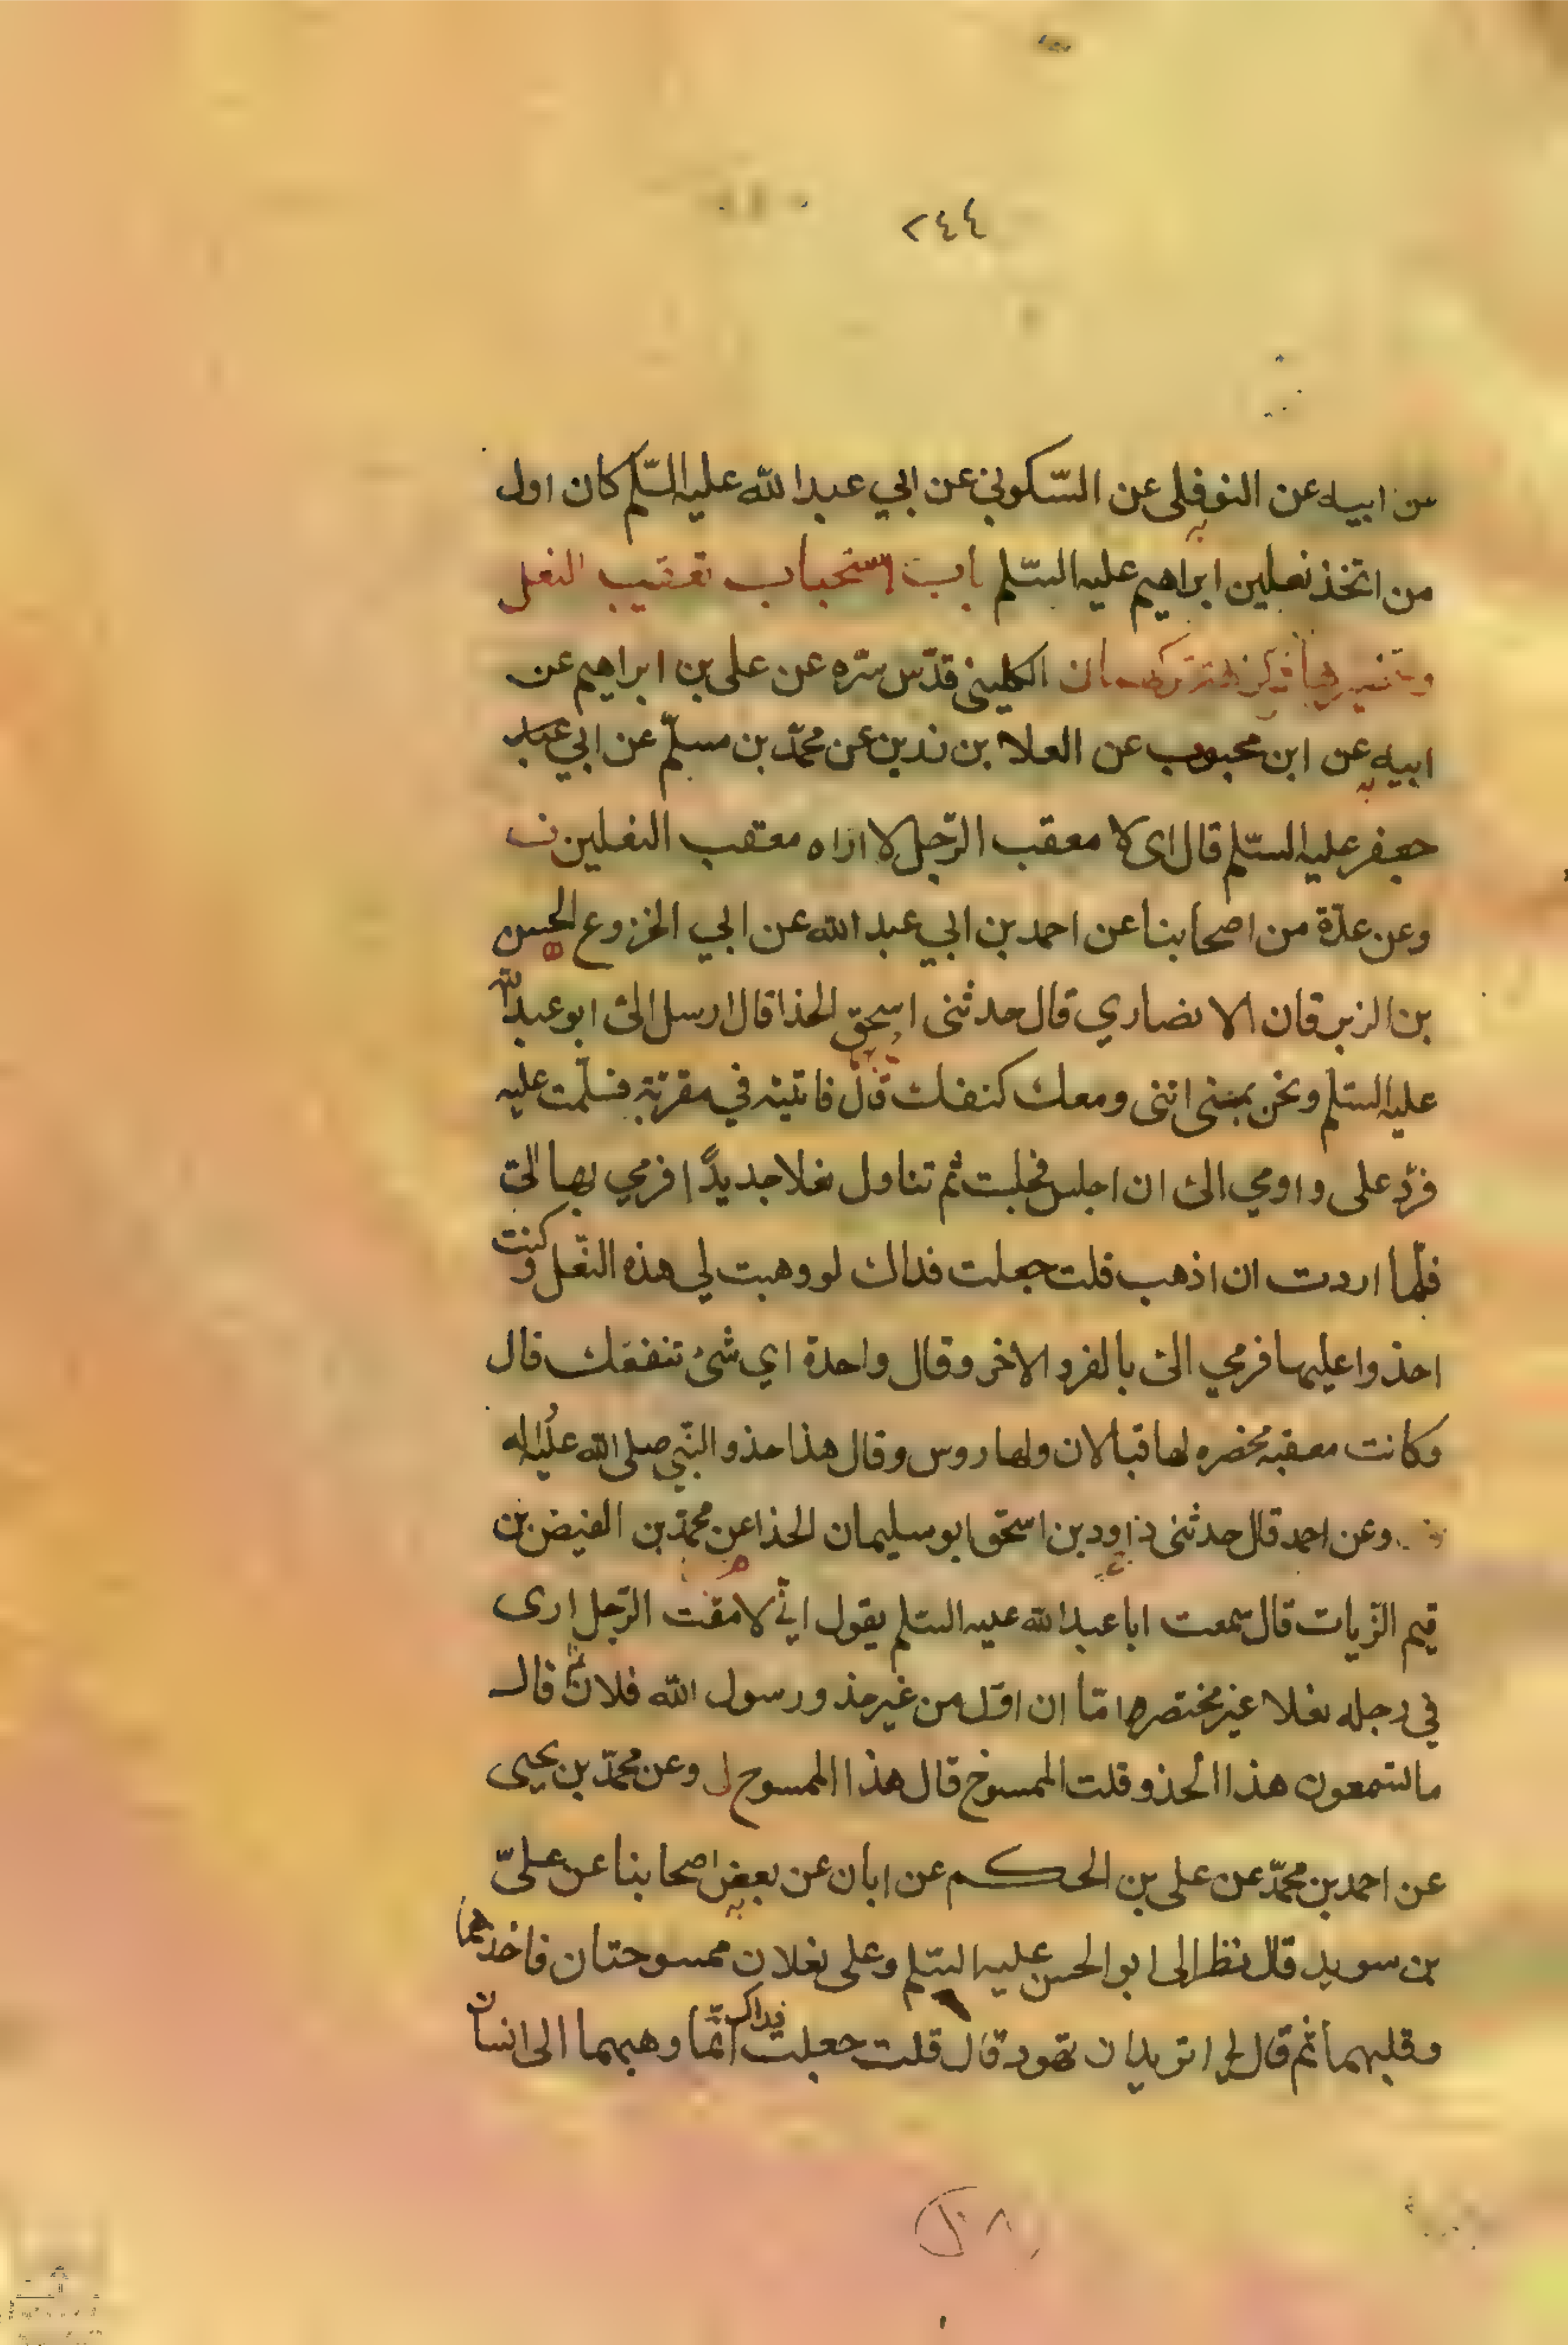 ٢٤٤
عن ابيه عن النوفلى عن السّكوني عن ابي عبدالله عليه السّلم كان اول
من اتخذ نعلين ابراهيم عليه السّلم باب استحباب تعقيب النعل
الكليني قدّس سّره عن على بن ابراهيم عن
ابيه عن ابن محبوب عن العلا بن رذين عن محمّد بن مسلّم عن ابي
جعفر عليه السّلم قال اى لا معقب الرّجل لا اراه معقب النعلين
وعن عدّة من اصحابنا عن احمد بن ابي عبد الله عن ابي الخزوع الحسن
بن الزبرقان الانضاري قال حدثنى اسحق الحذا قال ارسل الىّ ابو عبدالله
عليه السّلم ونحن بمنى ائتنى ومعك كنفك قال فاتيته في مقرتة فسلّمت عليه
فردّ على واومي الىّ ان اجلس فجلست ثم تناول نعلا جديدًا فرمي بها الىّ
فلّما اردت ان اذهب قلت جعلت فداك لو وهبت لي هذه النّعل وكنت
احذوا عليها فرمي الىّ بالفرد الاخر وقال واحدة اي شئ تنفعك قال
وكانت معقبه مخضره لها قبالان ولها روس وقال هذا حذو النّبي صلى الله عليه واله
وعن احمد قال حدثنى داود بن اسحق ابو سليمان الحذا عن محمّد بن الفيض بن
قيم الزّيات قال سمعت ابا عبدالله عليه السّلم يقول انّي لامقت الرّجل ارى
في رجله نعلا غير مختصره امّا ان اوّل من غير حذو رسول الله فلان ثم قال
ما لتسمعون هذا الحذو قلت الممسوخ قال هذا الممسوح ل وعن محمّد بن يحيى
عن احمد بن محمّد عن على بن الحكم عن ابان عن بعض اصحابنا عن علىّ
بن سويد قال نظر الى ابو الحسن عليه السّلم وعلى نعلان ممسوحتان فاخذهما
وقلبهما ثم قال لي اتريد ان تهود قال قلت جعلت فداك انّما وهبهما الى انسان